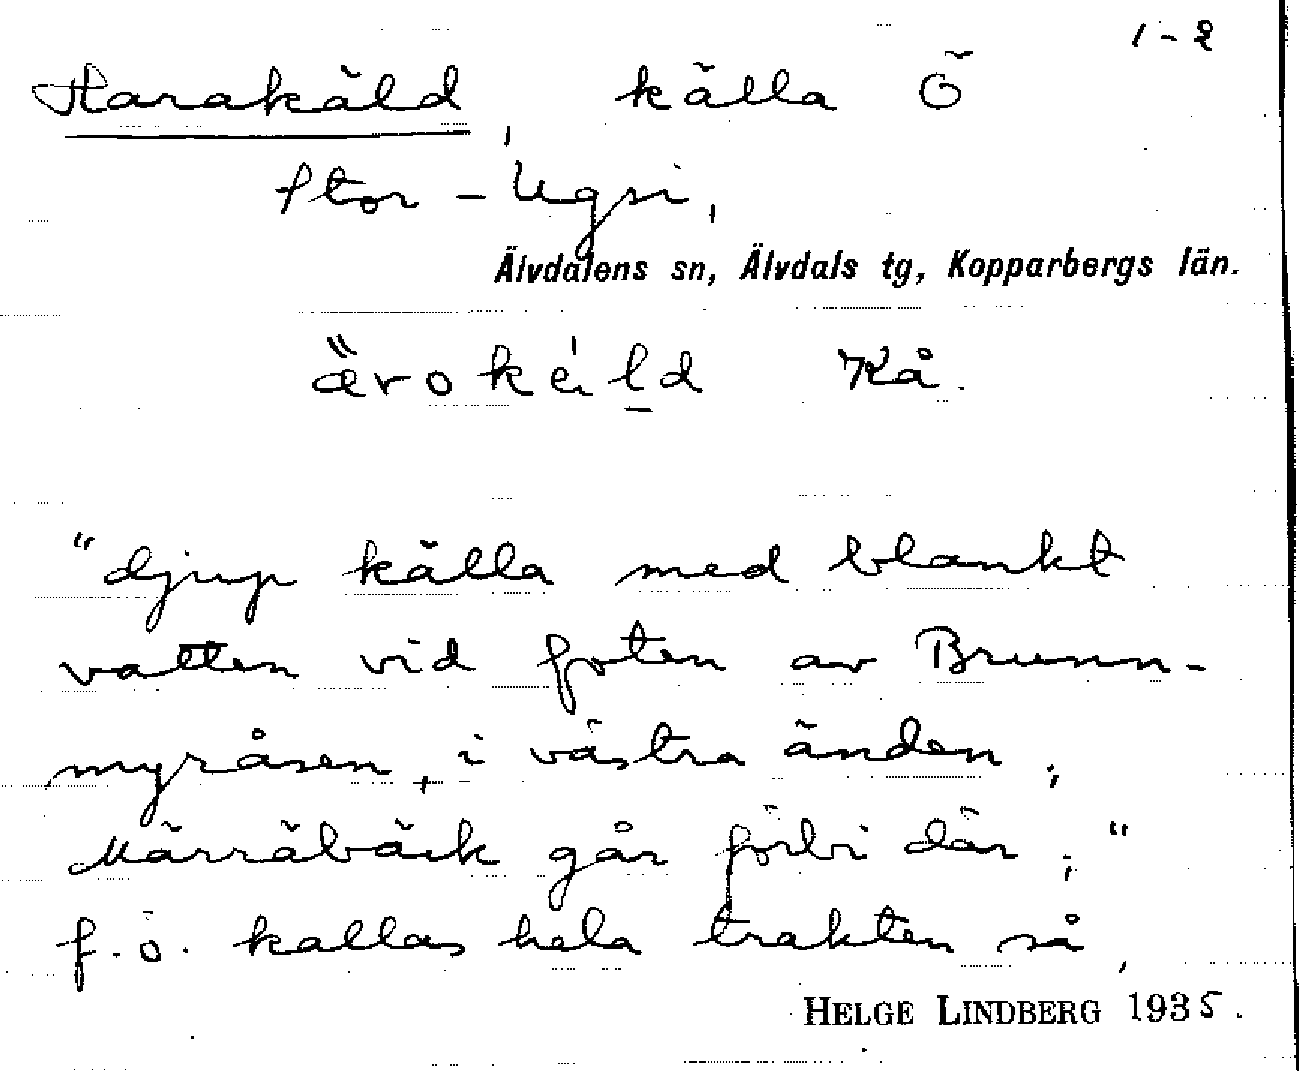 1-2
Harakäld, källa Ö
Stor-Ugsi,
Älvdalens sn, Älvdals tg, Kopparbergs län.
Kå.
"djup källa med blankt
vatten vid foten av Brunn-
myråsen, i västra änden;
Märräbäck går förbi där;"
f.ö. kallas hela trakten så,
HELGE LINDBERG 1935.